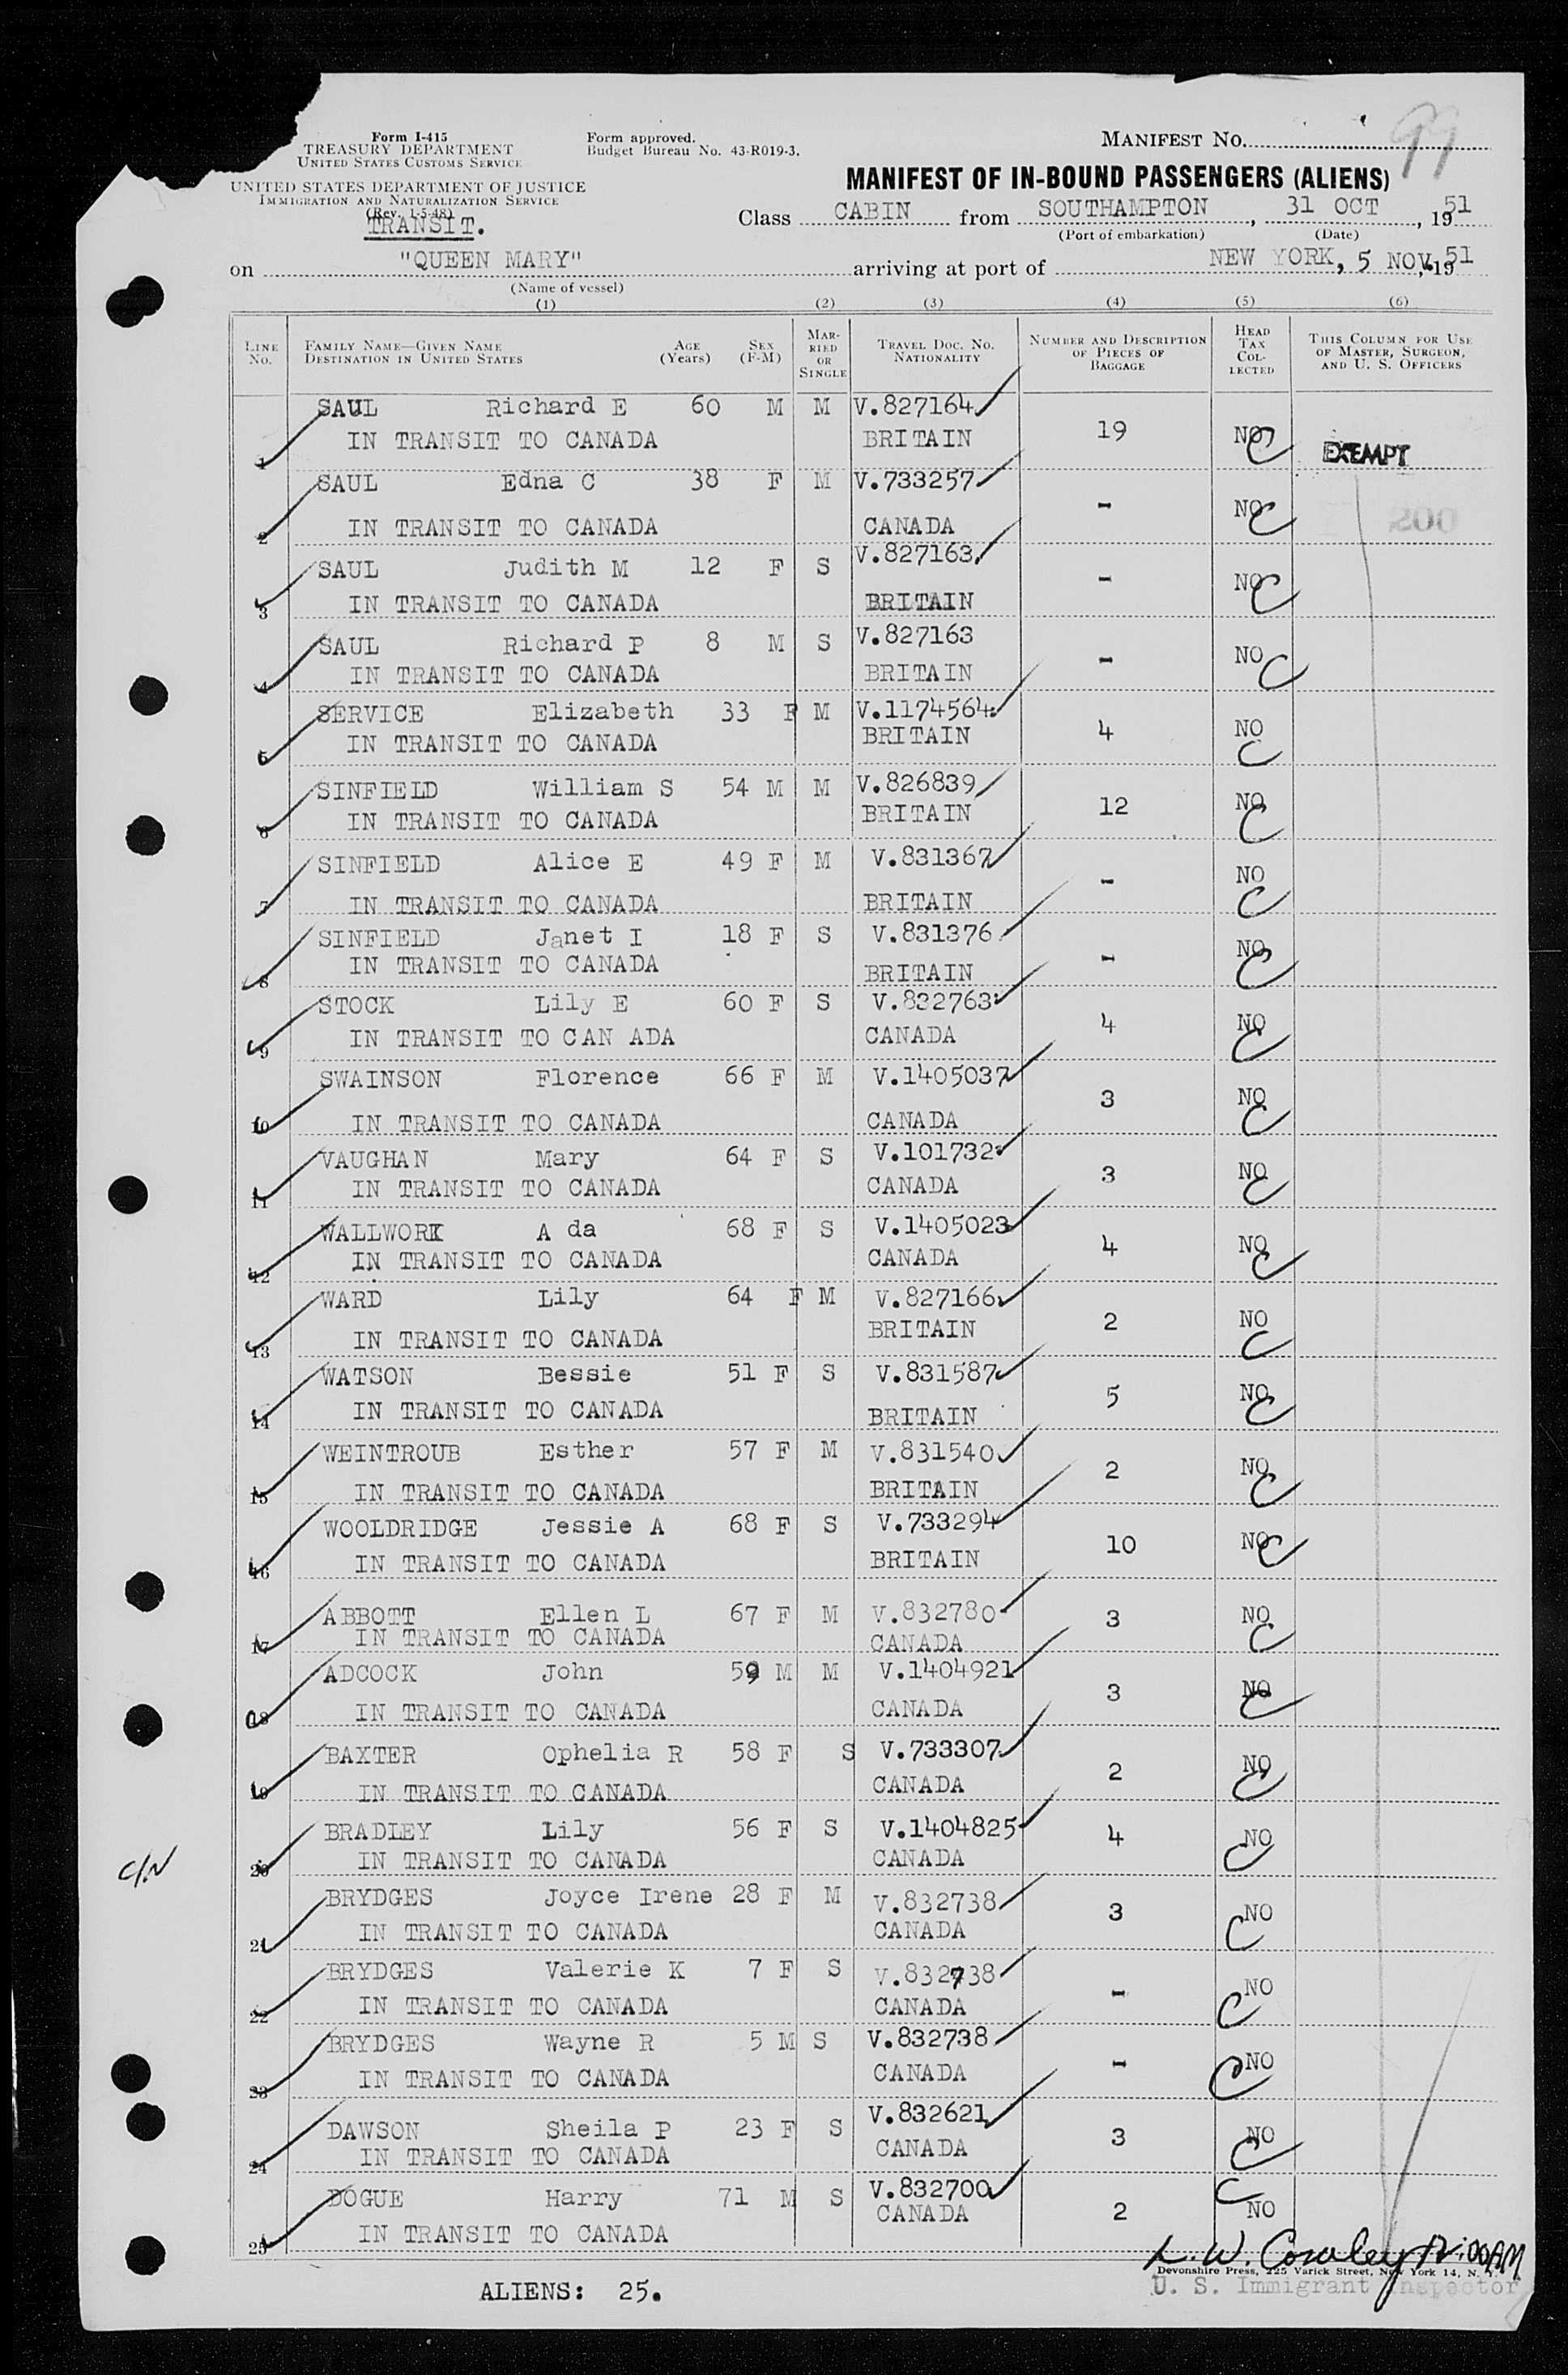 Form I-415
TREASURY DEPARTMENT
UNITED STATES CUSTOMS SERVICE
UNITED STATES DEPARTMENT OF JUSTICE
IMMIGRATION AND NATURALIZATION SERVICE
(Rev. 1-5-48)
TRANSIT.
Form approved.
Budget Bureau No. 43-R019-3.
MANIFEST NO. 99
MANIFEST OF IN-BOUND PASSENGERS (ALIENS)
Class CABIN from SOUTHAMPTON, 31 OCT, 1951
(Port of embarkation) (Date)
on "QUEEN MARY" arriving at port of NEW YORK, 5 NOV. 1951
(Name of vessel)
(1) (2) (3) (4) (5) (6)
LINE NO. FAMILY NAME—GIVEN NAME DESTINATION IN UNITED STATES AGE (Years) SEX (F-M) MARRIED OR SINGLE TRAVEL DOC. NO. NATIONALITY NUMBER AND DESCRIPTION OF PIECES OF BAGGAGE HEAD TAX COLLECTED THIS COLUMN FOR USE OF MASTER, SURGEON, AND U. S. OFFICERS
1 SAUL Richard E 60 M M V.827164 19 NO C EXEMPT
IN TRANSIT TO CANADA BRITAIN
2 SAUL Edna C 38 F M V.733257 - NO C 200
IN TRANSIT TO CANADA CANADA
3 SAUL Judith M 12 F S V.827163 - NO C
IN TRANSIT TO CANADA BRITAIN
4 SAUL Richard P 8 M S V.827163 - NO C
IN TRANSIT TO CANADA BRITAIN
5 SERVICE Elizabeth 33 F M V.1174564 4 NO C
IN TRANSIT TO CANADA BRITAIN
6 SINFIELD William S 54 M M V.826839 12 NO C
IN TRANSIT TO CANADA BRITAIN
7 SINFIELD Alice E 49 F M V.831367 - NO C
IN TRANSIT TO CANADA BRITAIN
8 SINFIELD Janet I 18 F S V.831376 - NO C
IN TRANSIT TO CANADA BRITAIN
9 STOCK Lily E 60 F S V.832763 4 NO C
IN TRANSIT TO CAN ADA CANADA
10 SWAINSON Florence 66 F M V.1405037 3 NO C
IN TRANSIT TO CANADA CANADA
11 VAUGHAN Mary 64 F S V.101732 3 NO C
IN TRANSIT TO CANADA CANADA
12 WALLWORK A da 68 F S V.1405023 4 NO C
IN TRANSIT TO CANADA CANADA
13 WARD Lily 64 F M V.827166 2 NO C
IN TRANSIT TO CANADA BRITAIN
14 WATSON Bessie 51 F S V.831587 5 NO C
IN TRANSIT TO CANADA BRITAIN
15 WEINTROUB Esther 57 F M V.831540 2 NO C
IN TRANSIT TO CANADA BRITAIN
16 WOOLDRIDGE Jessie A 68 F S V.733294 10 NO C
IN TRANSIT TO CANADA BRITAIN
17 ABBOTT Ellen L 67 F M V.832780 3 NO C
IN TRANSIT TO CANADA CANADA
18 ADCOCK John 59 M M V.1404921 3 NO C
IN TRANSIT TO CANADA CANADA
19 BAXTER Ophelia R 58 F S V.733307 2 NO C
IN TRANSIT TO CANADA CANADA
20 BRADLEY Lily 56 F S V.1404825 4 NO C
C/N IN TRANSIT TO CANADA CANADA
21 BRYDGES Joyce Irene 28 F M V.832738 3 NO C
IN TRANSIT TO CANADA CANADA
22 BRYDGES Valerie K 7 F S V.832738 - NO C
IN TRANSIT TO CANADA CANADA
23 BRYDGES Wayne R 5 M S V.832738 - NO C
IN TRANSIT TO CANADA CANADA
24 DAWSON Sheila P 23 F S V.832621 3 NO C
IN TRANSIT TO CANADA CANADA
25 DOGUE Harry 71 M S V.832700 2 NO C
IN TRANSIT TO CANADA CANADA
L. W. Cowley 12:00AM
Devonshire Press, 225 Varick Street, New York 14, N. Y.
ALIENS: 25.
U. S. Immigrant Inspector